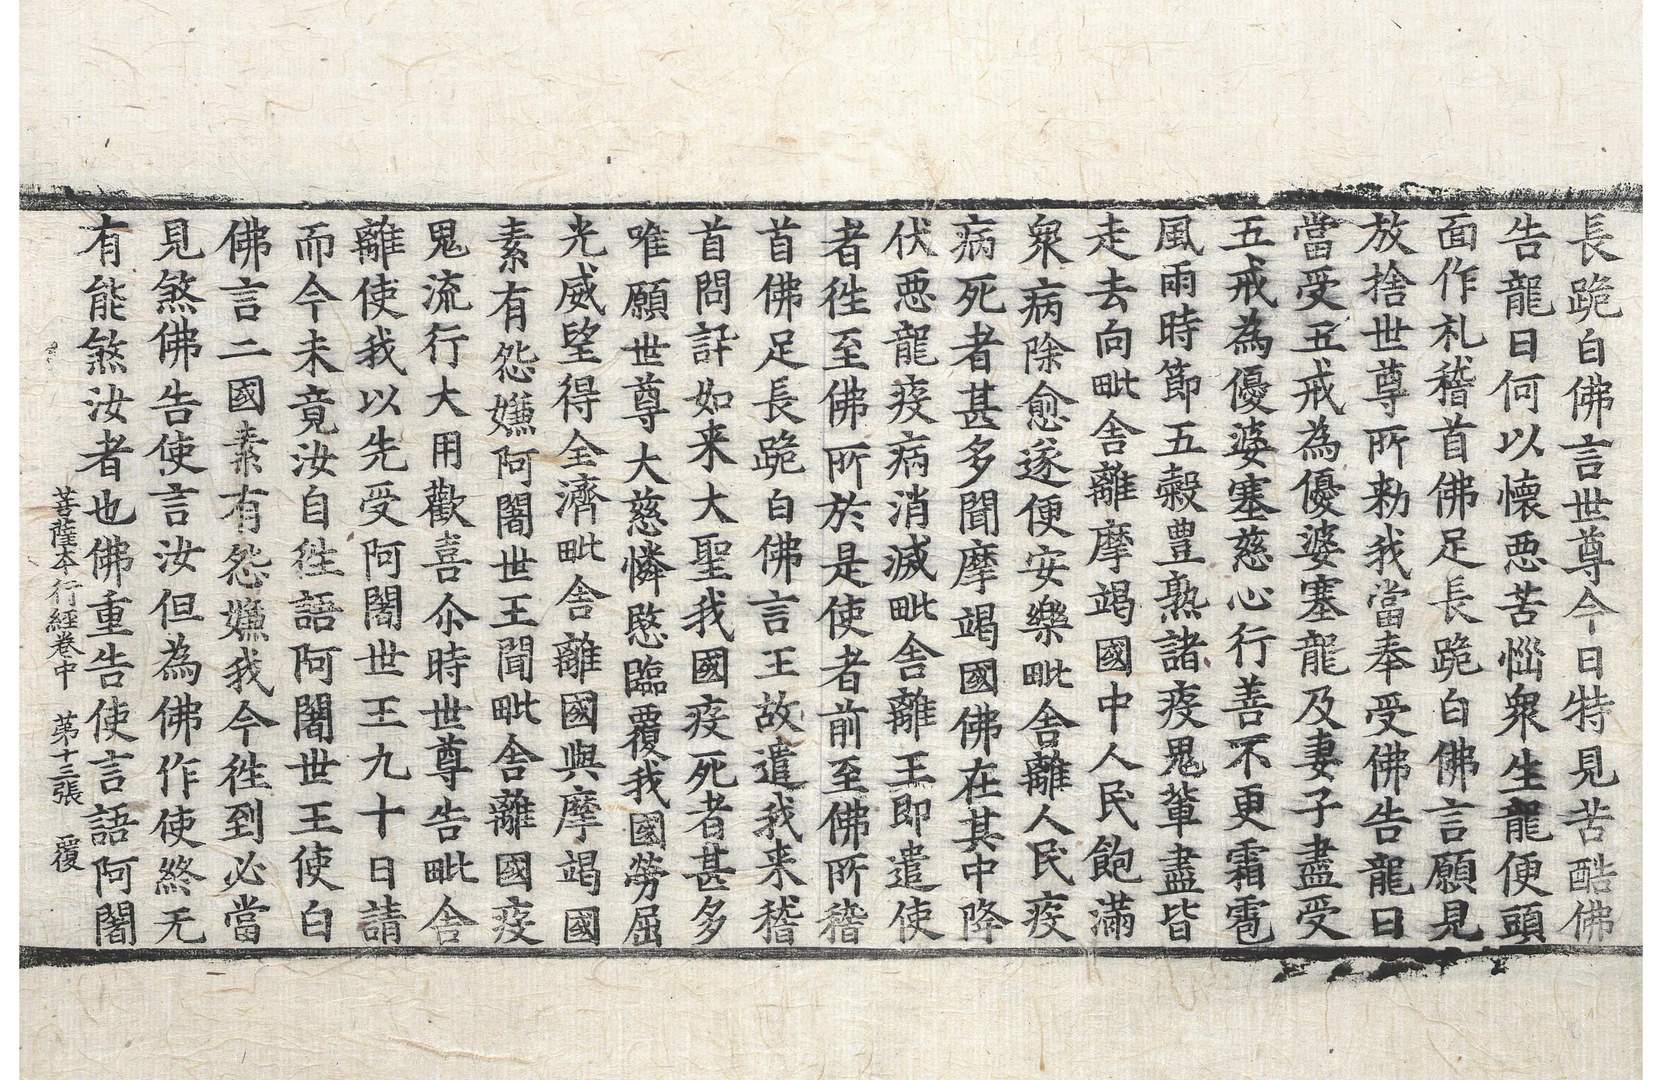 長跪白佛言世尊今日特見苦酷佛
告龍曰何以懷惡苦惱衆生龍便頭
面作礼稽首佛足長跪白佛言願見
放捨世尊所勑我當奉受佛告龍曰
當受五戒為優婆塞龍及妻子盡受
五戒為優婆塞慈心行善不更霜雹
風雨時節五穀豊熟諸疫鬼輩盡皆
走去向毗舍離摩竭國中人民飽滿
衆病除愈遂便安樂毗舍離人民疫
病死者甚多聞摩竭國佛在其中降
伏惡龍疫病消滅毗舍離王即遣使
者徃至佛所於是使者前至佛所稽
首佛足長跪白佛言王故遣我来稽
首問訊如来大聖我國疫死者甚多
唯願世尊大慈憐愍臨覆我國勞屈
光威望得全濟毗舍離國與摩竭國
素有怨嫌阿闍世王聞毗舍離國疫
鬼流行大用歡喜尒時世尊告毗舍
離使我以先受阿闍世王九十日請
而今未竟汝自徃語阿闍世王使白
佛言二國素有怨嫌我今徃到必當
見煞佛告使言汝但為佛作使終无
有能煞汝者也佛重告使言語阿闍
菩薩本行經卷中 苐十三張 覆